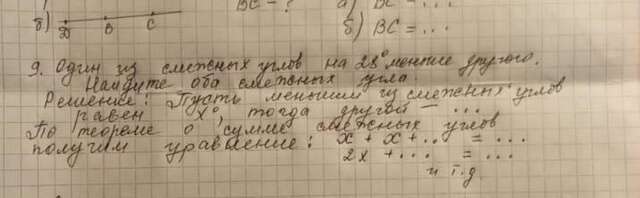 BC - ? а) BC = ...
б) D B C б) BC = ...
9. Один из смежных углов на 28° меньше другого.
Найдите оба смежных угла.
Решение: Пусть меньший из смежных углов
равен x°, тогда другой - ...
По теореме о сумме смежных углов
получим уравнение: x + x + ... = ...
2x + ... = ...
и т.д.